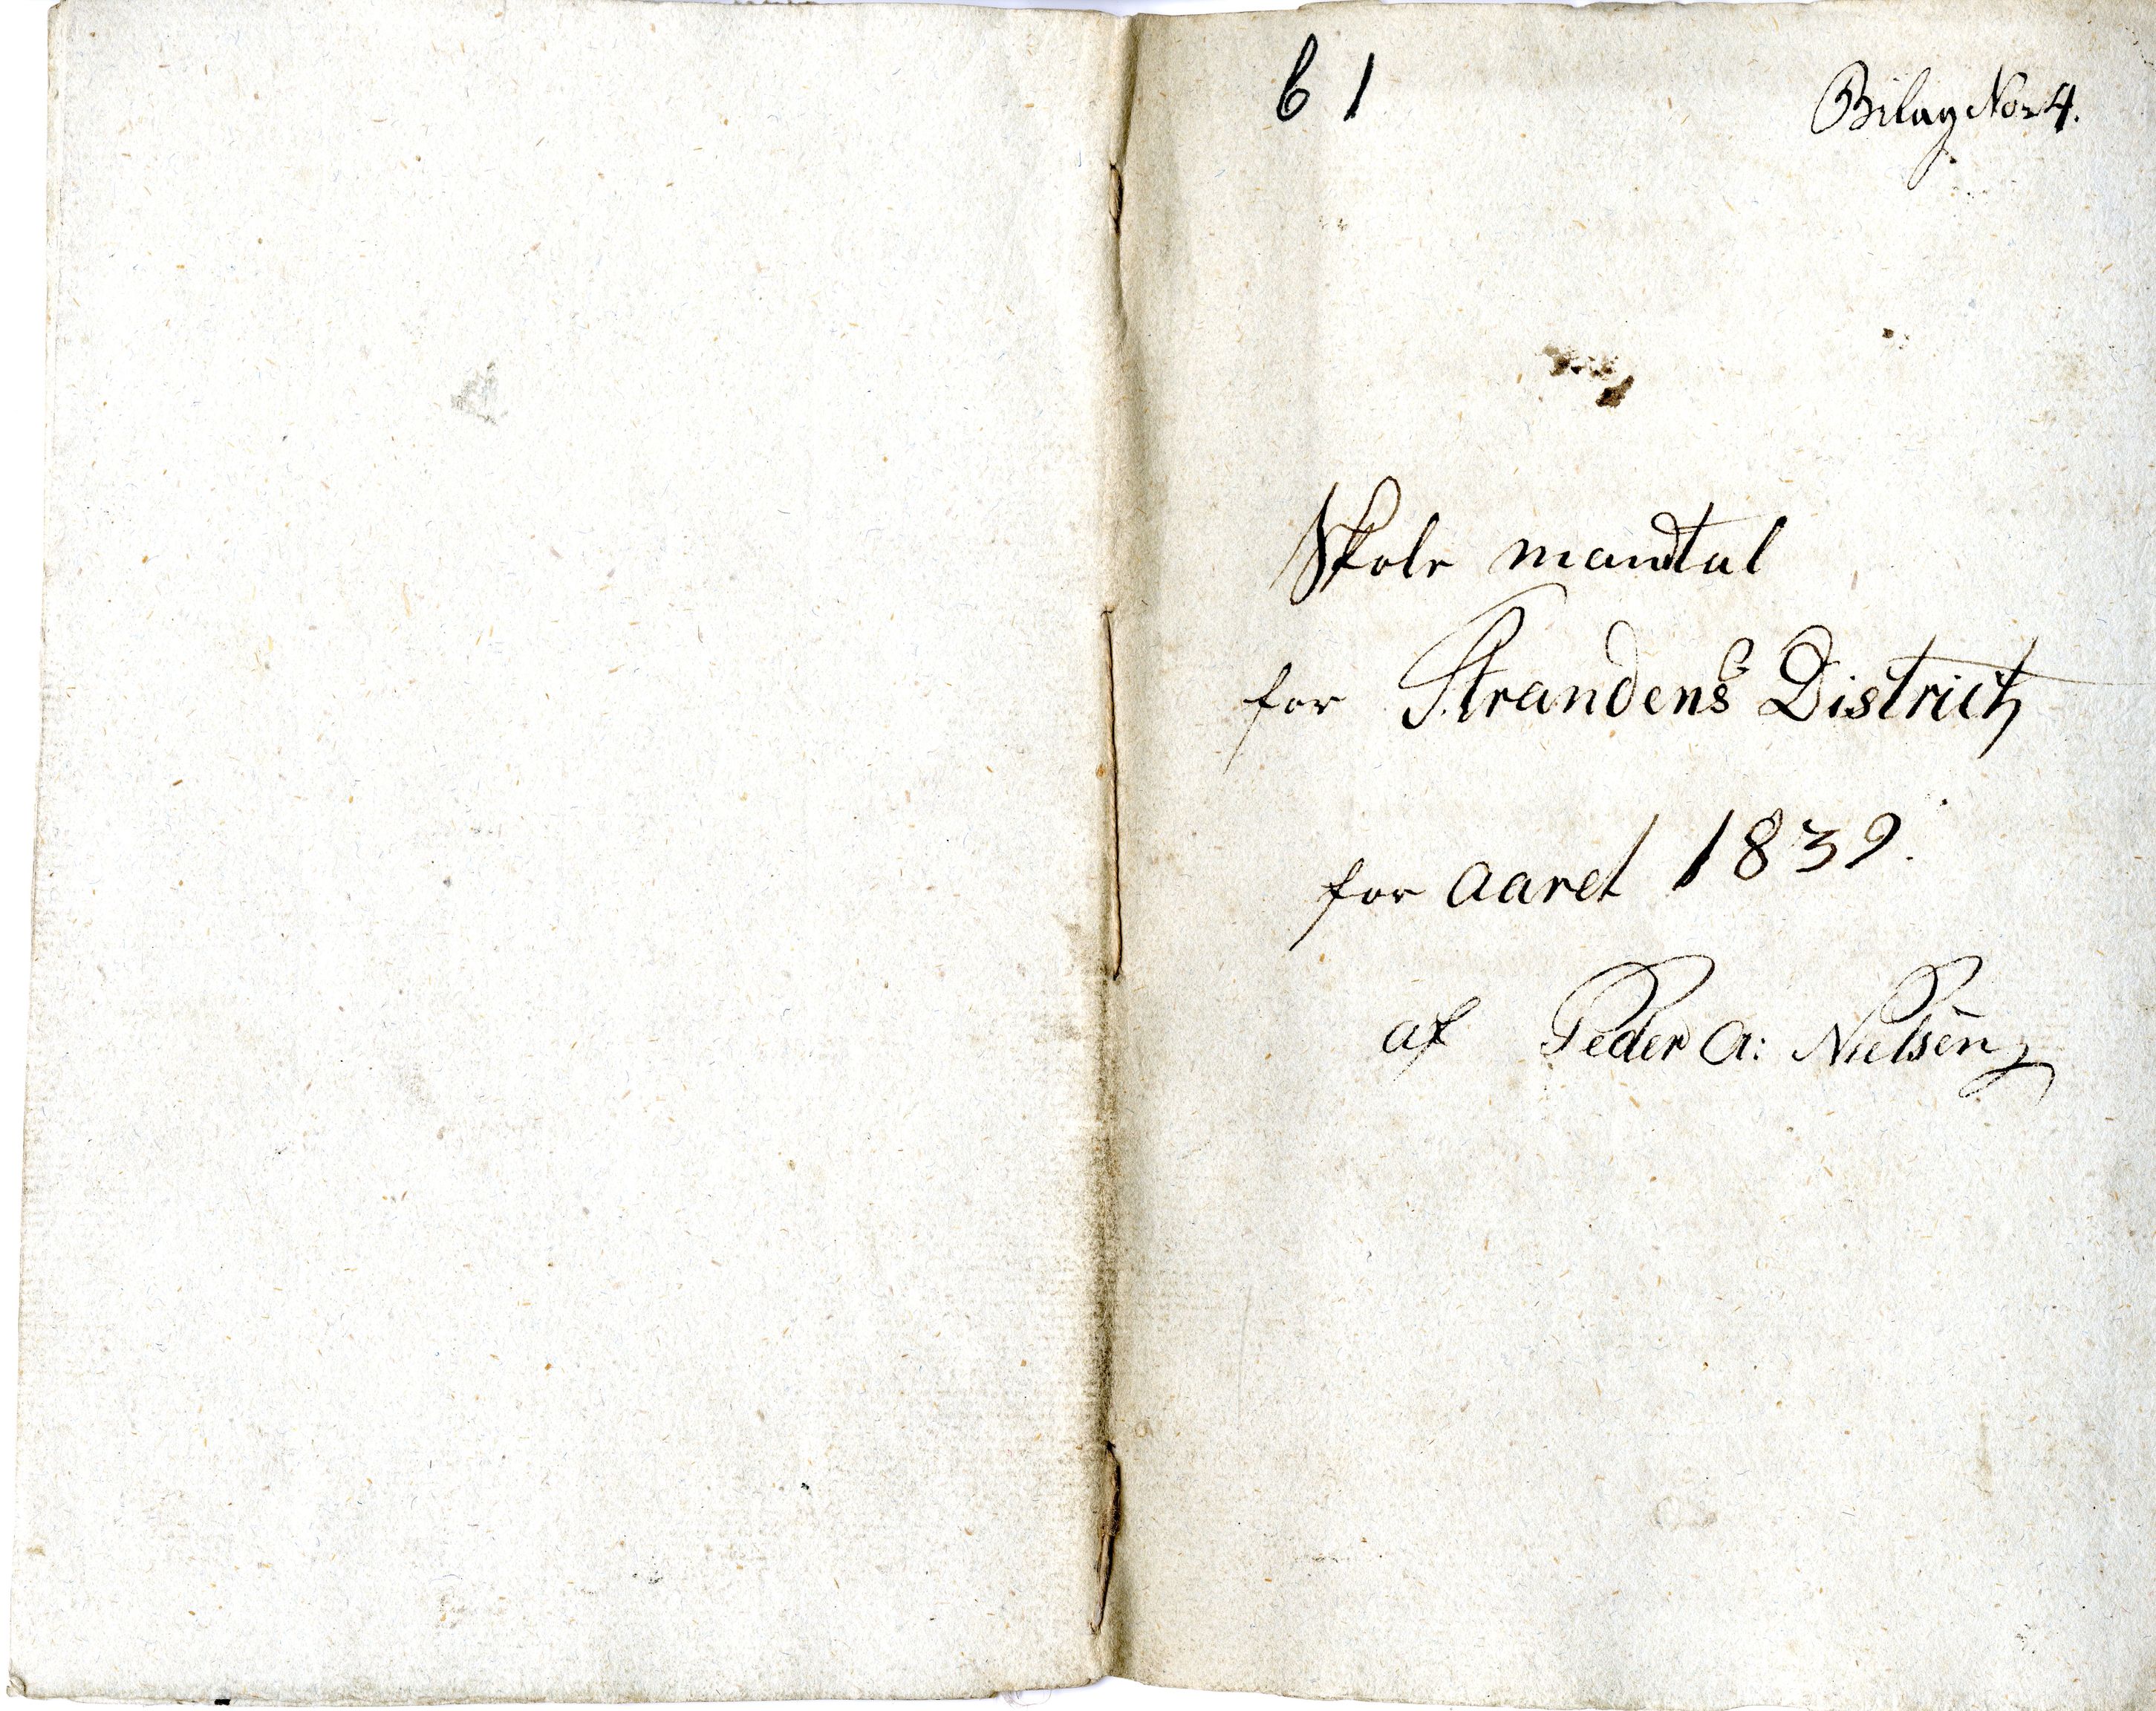 b 1
Bilag No 4.
Skole mandtal
for Strandens District
for Aaret 1839.
af Peder A: Nielsen